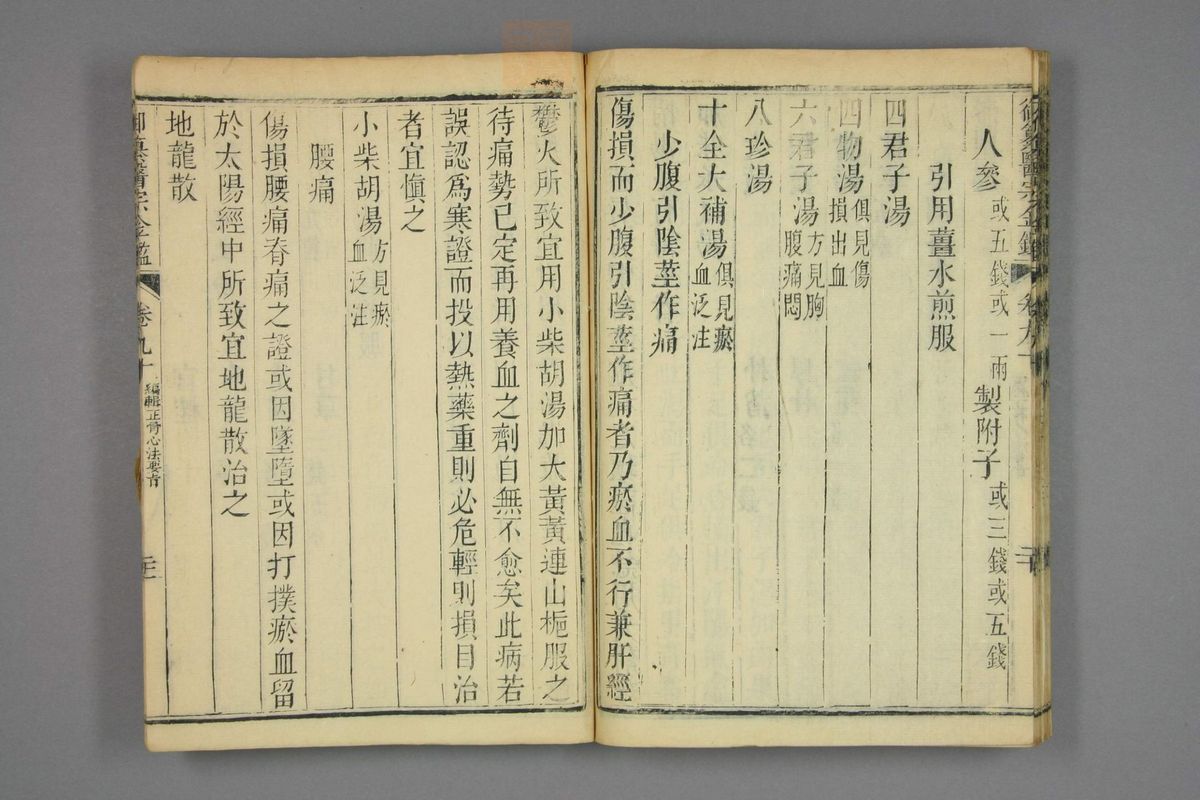 御纂醫宗金鑑
人參或五錢或一兩 製附子或三錢或五錢
引用薑水煎服
四君子湯
四物湯俱見傷損出血
六君子湯方見胸腹痛悶
八珍湯
十全大補湯俱見瘀血泛注
少腹引陰莖作痛
傷損而少腹引陰莖作痛者乃瘀血不行兼肝經
鬱火所致宜用小柴胡湯加大黃黃連山梔服之
待痛勢已定再用養血之劑自無不愈矣此病若
誤認爲寒證而投以熱藥重則必危輕則損目治
者宜慎之
小柴胡湯方見瘀血泛注
腰痛
傷損腰痛脊痛之證或因墜墮或因打撲瘀血留
於太陽經中所致宜地龍散治之
地龍散
御纂醫宗金鑑 卷九十 編輯正骨心法要旨